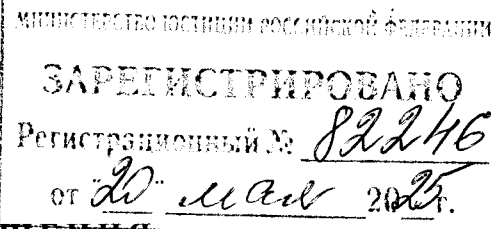 МИНИСТЕРСТВО ЮСТИЦИИ РОССИЙСКОЙ ФЕДЕРАЦИИ
ЗАРЕГИСТРИРОВАНО
Регистрационный № 82246
от "20" мая 2025г.